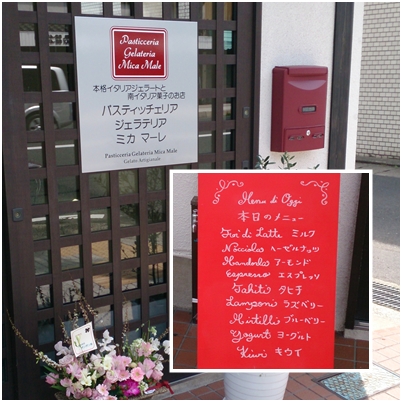 Pasticceria
Gelateria
Mica Male
本格イタリアジェラートと
南イタリア菓子のお店
パスティッチェリア
ジェラテリア
ミカ マーレ
Pasticceria Gelateria Mica Male
Gelato Artigianale
Menu di Oggi
本日のメニュー
Fior di Latte ミルク
Nocciola ヘーゼルナッツ
Mandorla アーモンド
Espresso エスプレッソ
Tahiti タヒチ
Lamponi ラズベリー
Mirtilli ブルーベリー
Yogurt ヨーグルト
Kiwi キウイ